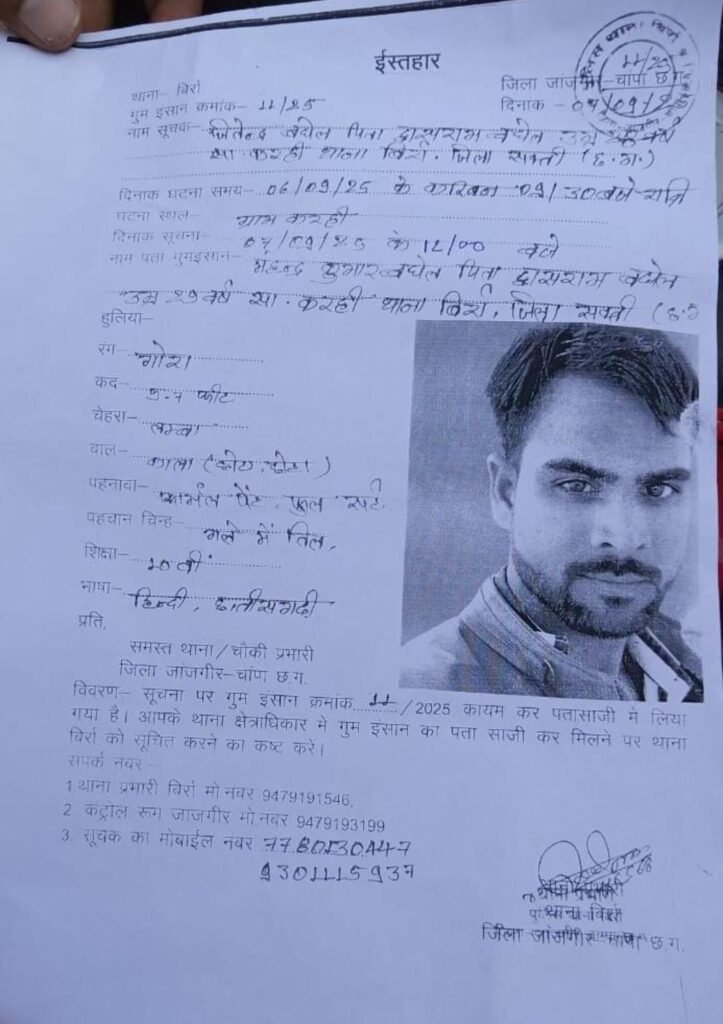 ईस्तहार
थाना- बिर्रा
जिला जांजगीर-चांपा छ.ग.
गुम इंसान क्रमांक- 11/25
दिनांक - 07/09/25
नाम सूचक- जितेन्द्र बघेल पिता द्वासराम बघेल उम्र वर्ष
सा करही थाना बिर्रा. जिला सक्ती (छ.ग.)
दिनांक घटना समय- 06/09/25 के करिबन 09/30 बजे रात्रि
घटना स्थल- ग्राम करही
दिनांक सूचना- 07/09/25 के 12/00 बजे
नाम पता गुमइंसान- महेन्द्र कुमार बघेल पिता द्वासराम बघेल
उम्र 29 वर्ष सा. करही थाना बिर्रा, जिला सक्ती (छ.ग
हुलिया-
रंग- गोरा
कद- 5.7 फीट
चेहरा- लम्बा
बाल- काला (छोटा छोटा)
पहनावा- फार्मल पेंट, फुल सर्ट
पहचान चिन्ह- गले में तिल,
शिक्षा- 10 वीं
भाषा- हिन्दी, छत्तीसगढी
प्रति,
समस्त थाना/चौकी प्रभारी
जिला जांजगीर-चांपा छ.ग.
विवरण- सूचना पर गुम इंसान क्रमांक 11/2025 कायम कर पतासाजी मे लिया
गया है। आपके थाना क्षेत्राधिकार मे गुम इंसान का पता साजी कर मिलने पर थाना
बिर्रा को सूचित करने का कष्ट करें।
सपर्क नबर-
1 थाना प्रभारी बिर्रा मो.नबर 9479191546,
2 कंट्रोल रूम जांजगीर मो.नबर 9479193199
3. सूचक का मोबाईल नबर
9301115937
थाना बिर्रा
जिला जांजगीर चांपा छ.ग.